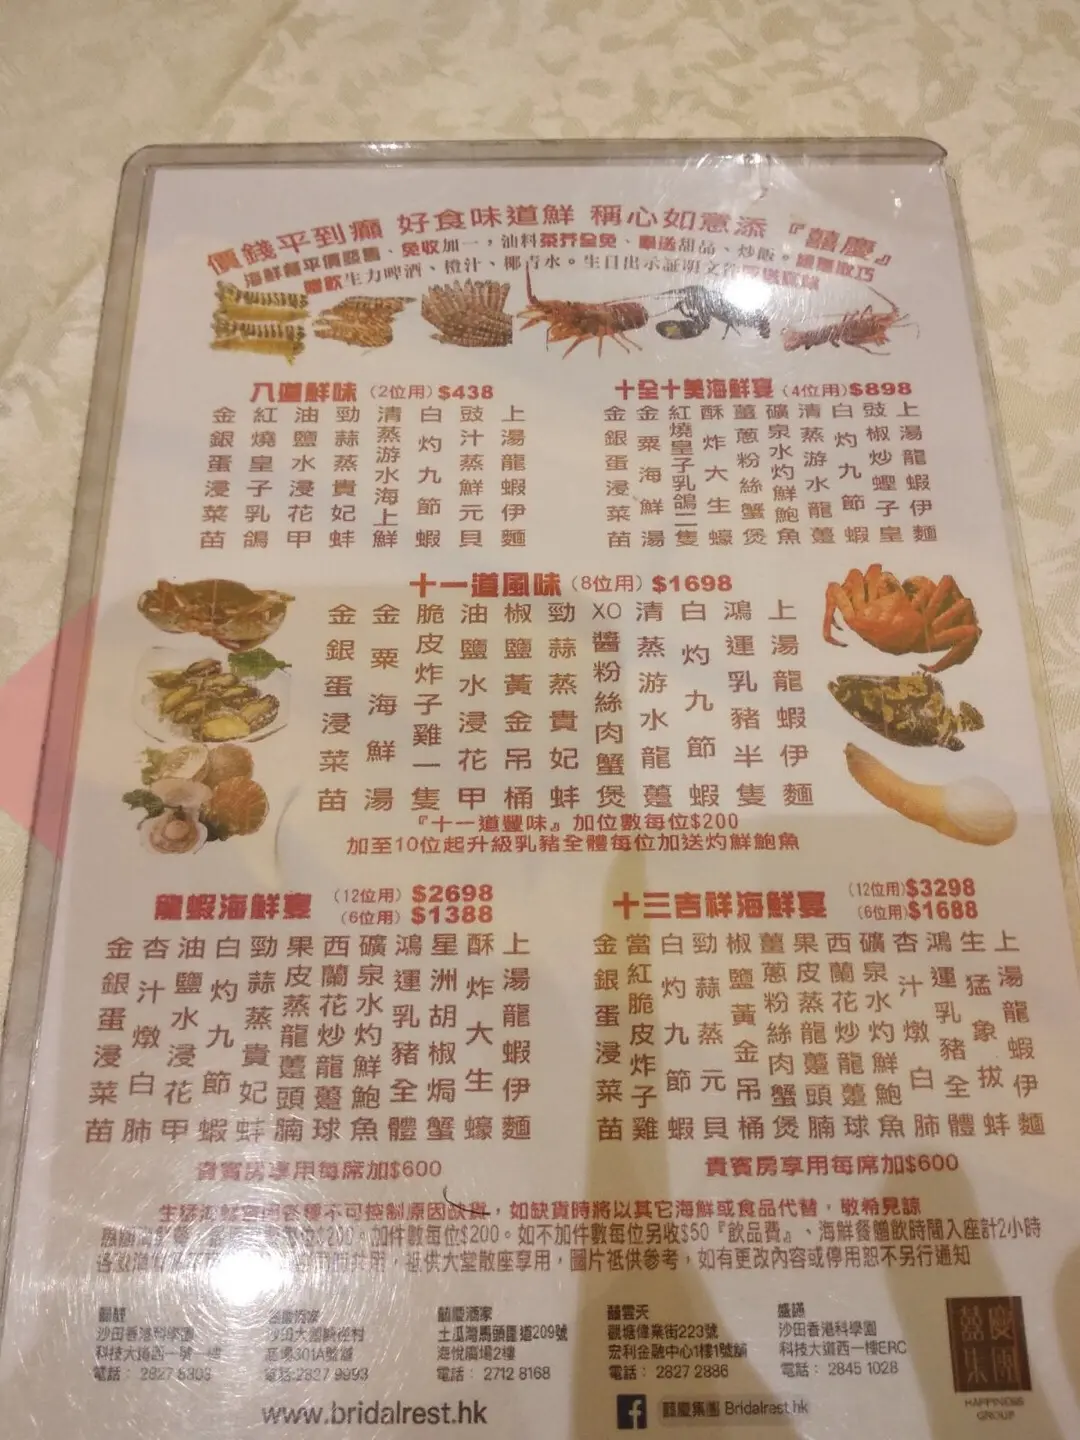 價錢平到癲 好食味道鮮 稱心如意添 『囍慶』
海鮮餐平價發售、免收加一，油料茶芥全免、單送甜品、炒飯。
贈飲生力啤酒、橙汁、椰青水。生日出示証明文件
八道鮮味（2位用）$438
上湯龍蝦伊麵
豉汁蒸鮮元貝
白灼九節蝦
清蒸游水海上鮮
勁蒜蒸貴妃蚌
油鹽水浸花甲
紅燒皇子乳鴿
金銀蛋浸菜苗
十全十美海鮮宴（4位用）$898
上湯龍蝦伊麵
豉椒炒蟶子皇
白灼九節蝦
清蒸游水龍躉
礦泉水灼鮮鮑魚
薑蔥粉絲蟹煲
酥炸大生蠔
紅燒皇子乳鴿二隻
金粟海鮮湯
金銀蛋浸菜苗
十一道風味（8位用）$1698
上湯龍蝦伊麵
鴻運乳豬半隻
白灼九節蝦
清蒸游水龍躉
XO醬粉絲肉蟹煲
勁蒜蒸貴妃蚌
椒鹽黃金吊桶
油鹽水浸花甲
脆皮炸子雞一隻
金粟海鮮湯
金銀蛋浸菜苗
『十一道豐味』加位數每位$200
加至10位起升級乳豬全體每位加送灼鮮鮑魚
龍蝦海鮮宴（12位用）$2698
（6位用）$1388
上湯龍蝦伊麵
酥炸大生蠔
星洲胡椒焗蟹
鴻運乳豬全體
礦泉水灼鮮鮑魚
西蘭花炒龍躉球
果皮蒸龍躉頭腩
勁蒜蒸貴妃蚌
白灼九節蝦
油鹽水浸花甲
杏汁燉白肺
金銀蛋浸菜苗
貴賓房享用每席加$600
十三吉祥海鮮宴（12位用）$3298
（6位用）$1688
上湯龍蝦伊麵
生猛象拔蚌
鴻運乳豬全體
杏汁燉白肺
礦泉水灼鮮鮑魚
西蘭花炒龍躉球
果皮蒸龍躉頭腩
薑蔥粉絲肉蟹煲
椒鹽黃金吊桶
勁蒜蒸元貝
白灼九節蝦
當紅脆皮炸子雞
金銀蛋浸菜苗
貴賓房享用每席加$600
生猛海鮮 不可控制原因缺貨，如缺貨時將以其它海鮮或食品代替，敬希見諒
$200。加件數每位$200。如不加件數每位另收$50『飲品費』、海鮮餐贈飲時間入座計2小時
同時共用，祗供大堂散座享用，圖片祗供參考，如有更改內容或停用恕不另行通知
沙田香港科學園
科技大道西一號一樓
電話：2827 8303
301A號舖
電話:2827 9993
囍慶酒家
土瓜灣馬頭圍道209號
海悅廣場2樓
電話：2712 8168
囍雲天
觀塘偉業街223號
宏利金融中心1樓1號舖
電話：2827 2886
盛謠
沙田香港科學園
科技大道西一樓ERC
電話：2845 1028
www.bridalrest.hk
囍慶集團 Bridalrest.hk
囍慶集團
HAPPINESS
GROUP